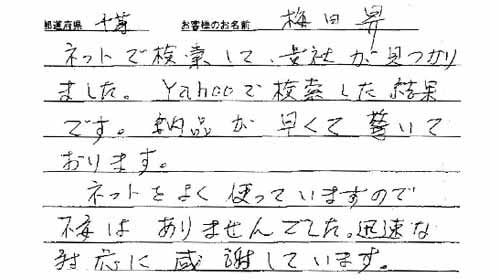 都道府県 千葉 お客様のお名前 梅田 昇
ネットで検索して、貴社が見つかり
ました。Yahooで検索した結果
です。納品が早くて驚いて
おります。
ネットをよく使っていますので
不安はありませんでした。迅速な
対応に感謝しています。